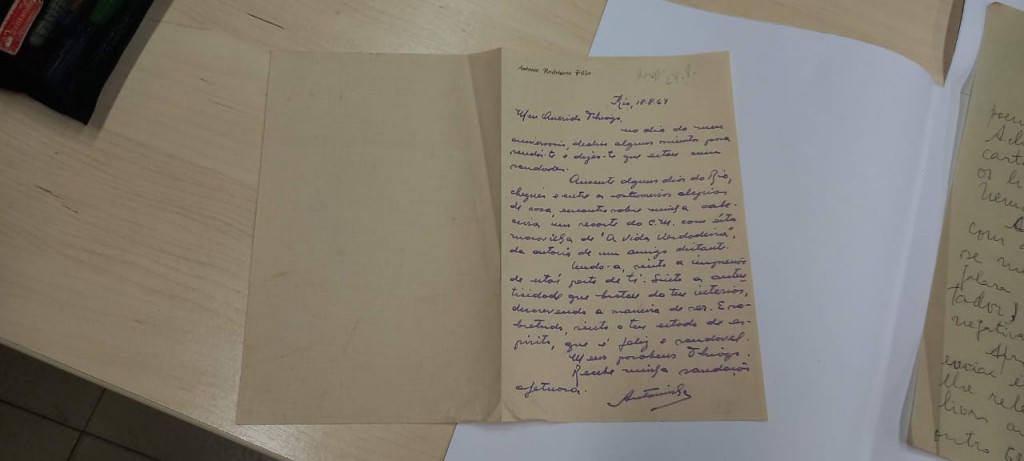 Antonio Rodrigues Filho
Rio, 18.8.64
Meu Querido Thiago,
no dia do meu
aniversario, dedico alguns minutos para
saudá-te e dizer-te que estou com
saudades.
Ausente alguns dias do Rio,
cheguei e entre as costumeiras alegrias
de casa, encontro sobre minha
um recorte do C.M. com esta
maravilha de "A Vida Verdadeira",
da autoria de um amigo distante.
Lendo-a, sinto a impressão
de estar perto de ti. Sinto a
que brotou do teu interior,
descrevendo a maneira de ser. E so-
bretudo, sinto o teu estado de es-
pirito, que é feliz e saudavel.
Meus parabens Thiago.
Recebe minha saudação
afetuosa.
Antoninho
cart
os li
com
se
falara
negativ
enviar
lhe rela
outro